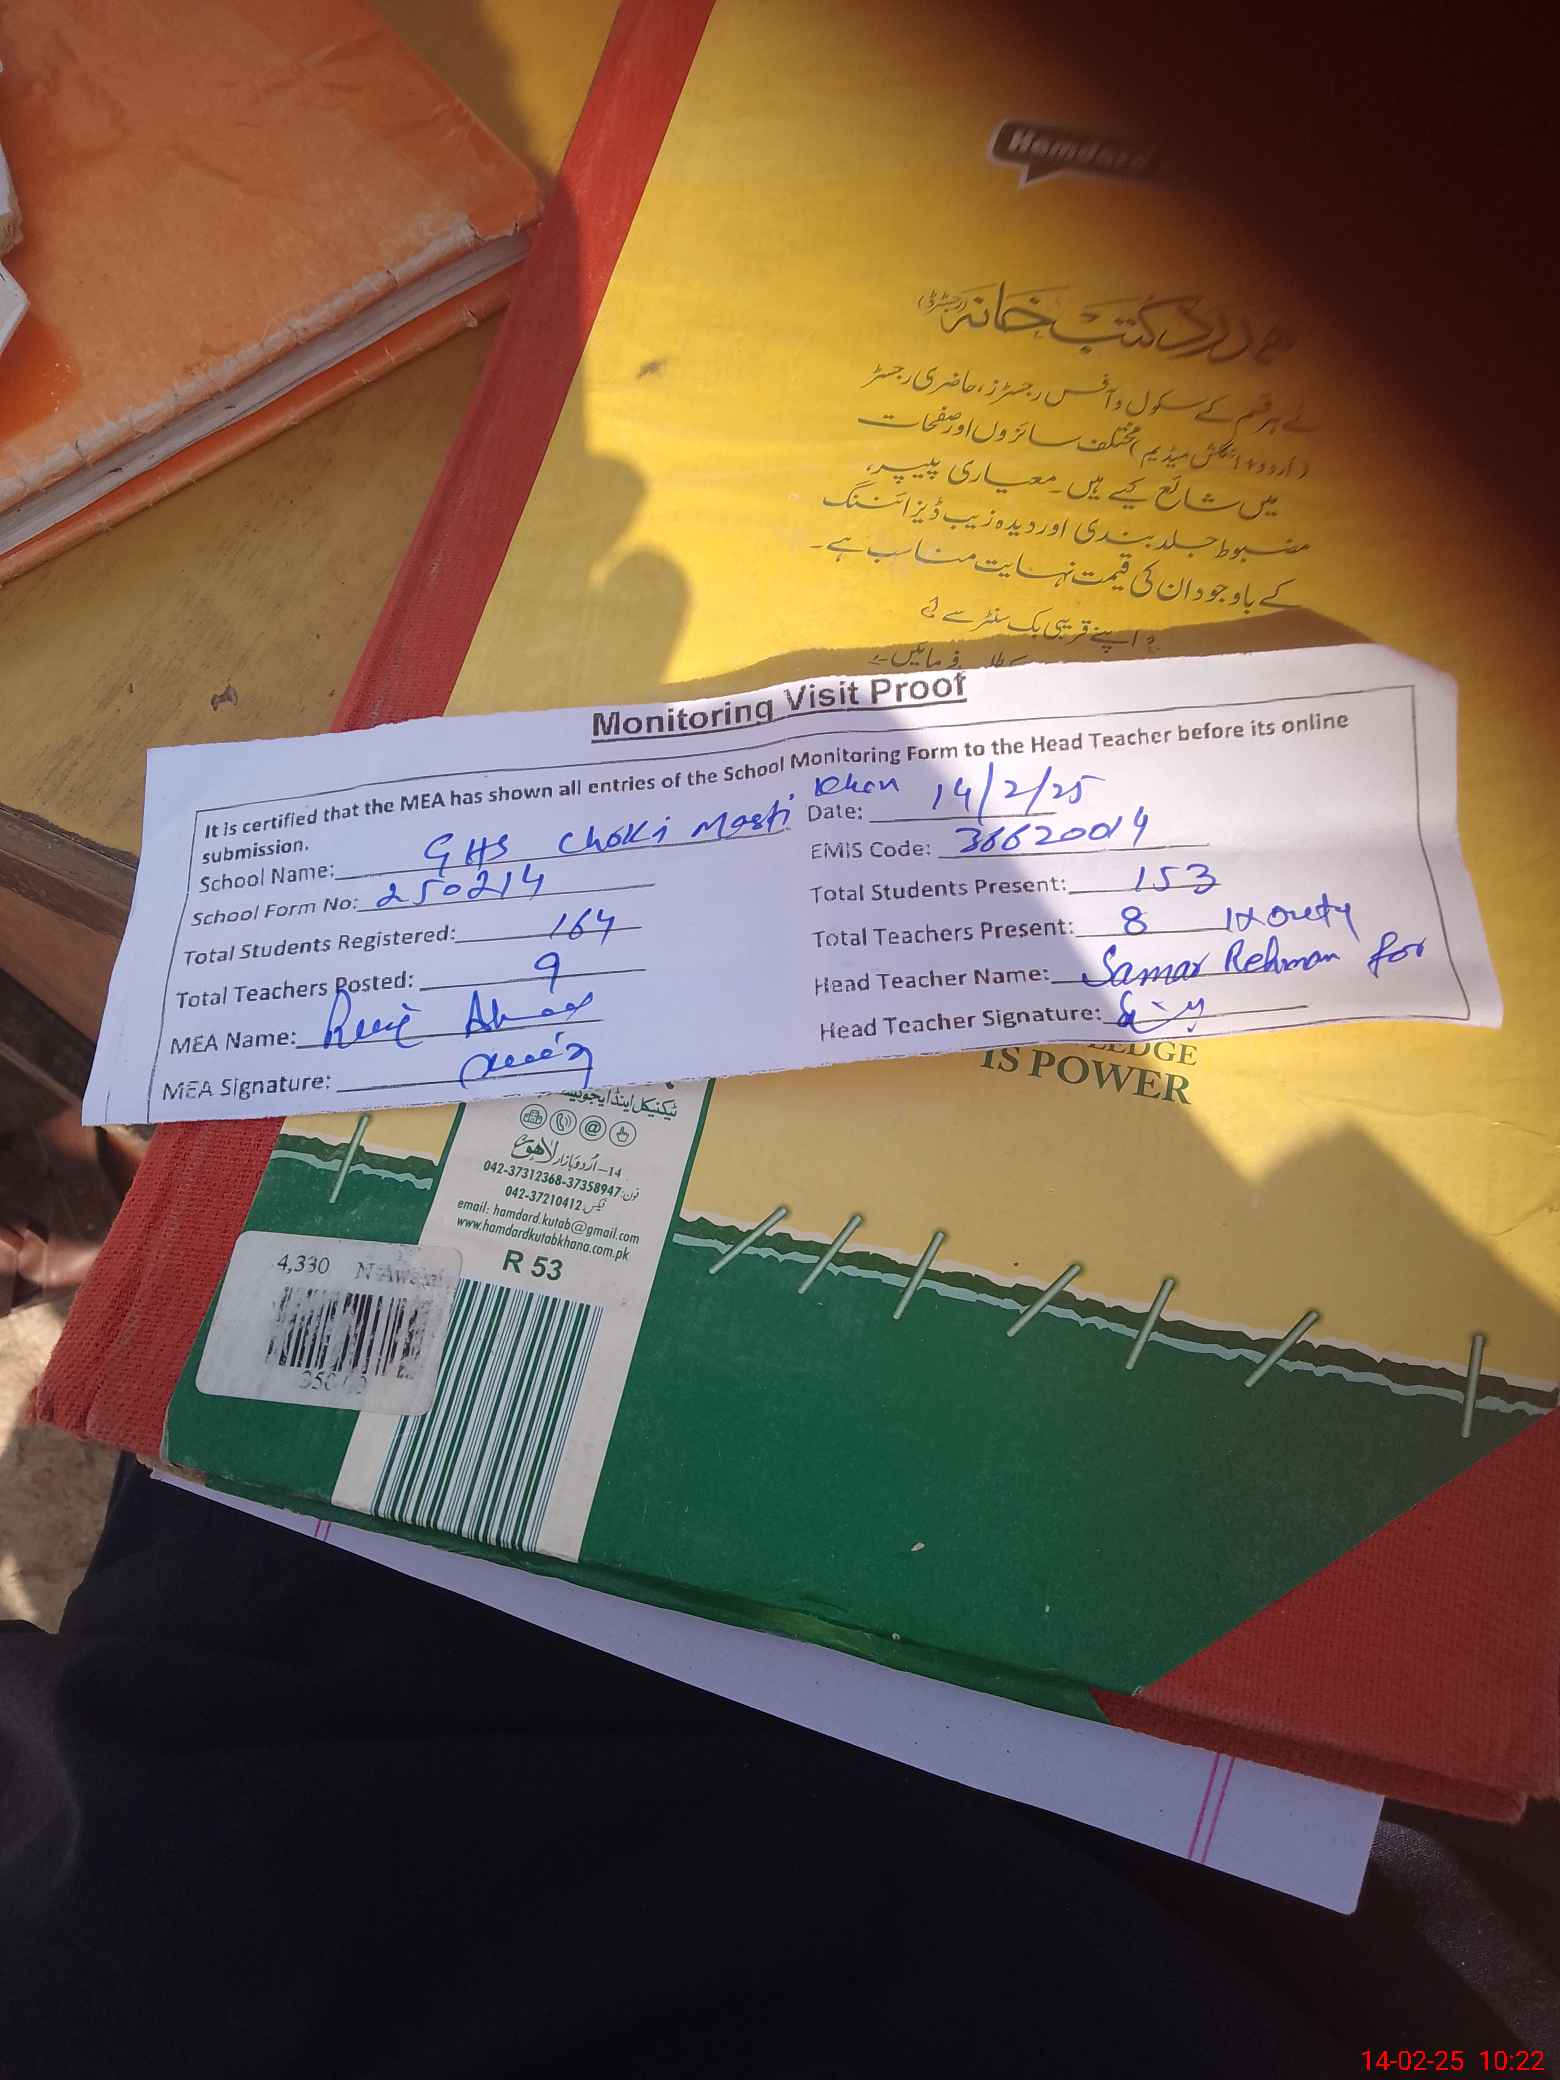 Hamdard
ہمدرد کتب خانہ (رجسٹرڈ)
نے ہر قسم کے سکول و آفس رجسٹرز، حاضری رجسٹر
(اردو + انگلش میڈیم) مختلف سائزوں اور صفحات
میں شائع کیے ہیں۔ معیاری پیپر،
مضبوط جلد بندی اور دیدہ زیب ڈیزائننگ
کے باوجود ان کی قیمت نہایت مناسب ہے۔
اپنے قریبی بک سنٹر سے
فرمائیں۔
Monitoring Visit Proof
It is certified that the MEA has shown all entries of the School Monitoring Form to the Head Teacher before its online
submission.
School Name: GHS Choki Masti Khan Date: 14/2/25
School Form No: 250214 EMIS Code: 36620014
Total Students Registered: 164 Total Students Present: 153
Total Teachers Posted: 9 Total Teachers Present: 8
MEA Name: Head Teacher Name: Samar Rehman for
MEA Signature: Head Teacher Signature:
IS POWER
ٹیکنیکل اینڈ ایجوکیشنل
14-اُردو بازار لاہور
فون: 042-37312368-37358947
فیکس: 042-37210412
email: hamdard.kutab@gmail.com
www.hamdardkutabkhana.com.pk
R 53
4,330
14-02-25 10:22